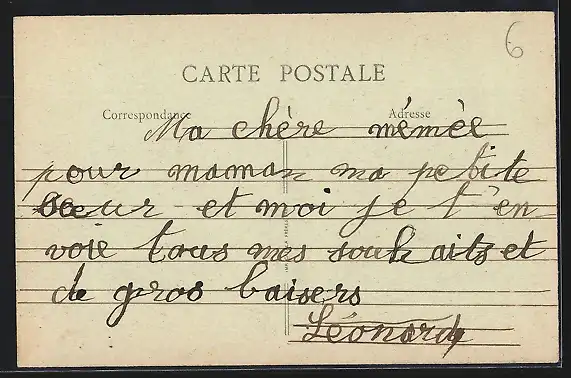 6
CARTE POSTALE
Correspondance Adresse
Ma chère mémèe
pour maman ma petite
sœur et moi je t'en
voie tous mes souhaits et
de gros baisers
Léonard